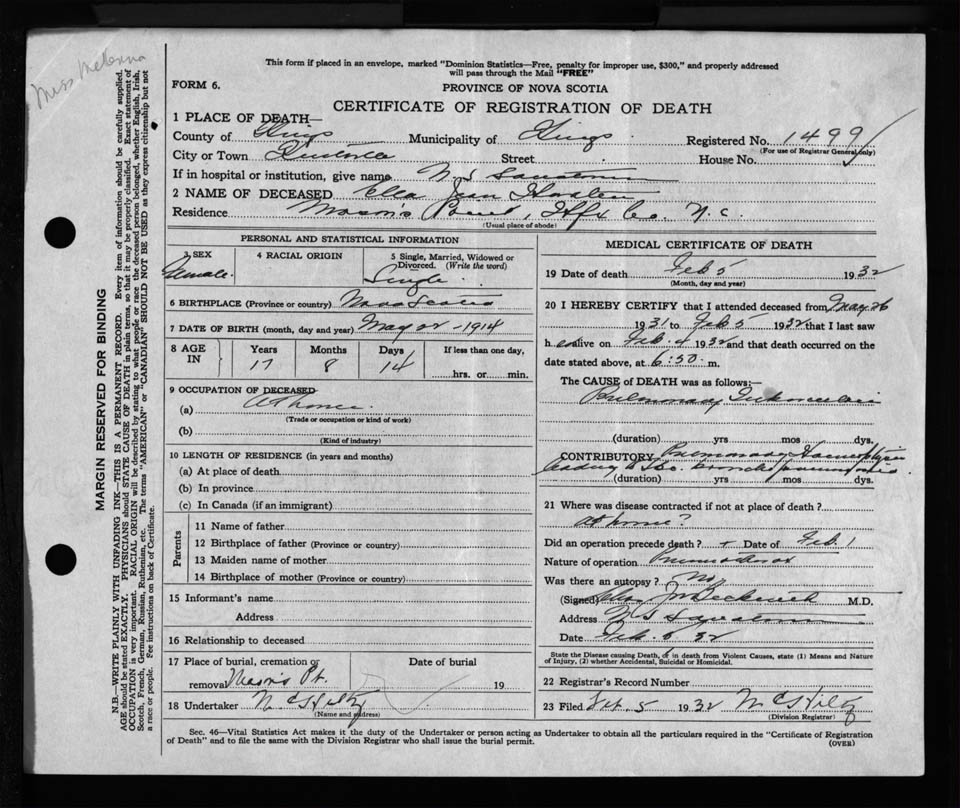 Miss McKenna
This form if placed in an envelope, marked "Dominion Statistics—Free, penalty for improper use, $300," and properly addressed
will pass through the Mail "FREE"
FORM 6.
PROVINCE OF NOVA SCOTIA
CERTIFICATE OF REGISTRATION OF DEATH
1 PLACE OF DEATH—
County of Kings Municipality of Kings Registered No. 1499
(For use of Registrar General only)
City or Town Kentville Street House No.
If in hospital or institution, give name N S Sanatorium
2 NAME OF DECEASED Ella Jean
Residence Mason's Point, Hfx Co. N.S.
(Usual place of abode)
PERSONAL AND STATISTICAL INFORMATION
3 SEX 4 RACIAL ORIGIN 5 Single, Married, Widowed or Divorced. (Write the word)
Female. Single
6 BIRTHPLACE (Province or country) Nova Scotia
7 DATE OF BIRTH (month, day and year) May 22 - 1914
8 AGE IN Years Months Days If less than one day,
17 8 14 hrs. or min.
9 OCCUPATION OF DECEASED
(a) At home.
(Trade or occupation or kind of work)
(b)
(Kind of industry)
10 LENGTH OF RESIDENCE (in years and months)
(a) At place of death
(b) In province
(c) In Canada (if an immigrant)
Parents
11 Name of father
12 Birthplace of father (Province or country)
13 Maiden name of mother
14 Birthplace of mother (Province or country)
15 Informant's name
Address
16 Relationship to deceased
17 Place of burial, cremation or Date of burial
removal Mason's Pt. 19
18 Undertaker N C Hiltz
(Name and address)
MEDICAL CERTIFICATE OF DEATH
19 Date of death Feb 5 1932
(Month, day and year)
20 I HEREBY CERTIFY that I attended deceased from May 26
1931 to Feb 5 1932 that I last saw
h er alive on Feb. 4 1932 and that death occurred on the
date stated above, at 6:50 m.
The CAUSE of DEATH was as follows:—
Pulmonary Tuberculosis
(duration) yrs mos dys.
CONTRIBUTORY Pulmonary Haemorrhage
leading to broncho pneumonia
(duration) yrs mos dys.
21 Where was disease contracted if not at place of death?
at home?
Did an operation precede death? + Date of Feb. 1
Nature of operation Pneumothorax
Was there an autopsy? No
(Signed) M.D.
Address N S Sanatorium
Date Feb. 5 32
State the Disease causing Death, or in death from Violent Causes, state (1) Means and Nature
of Injury, (2) whether Accidental, Suicidal or Homicidal.
22 Registrar's Record Number
23 Filed Feb. 5 1932 N C Hiltz
(Division Registrar)
Sec. 46—Vital Statistics Act makes it the duty of the Undertaker or person acting as Undertaker to obtain all the particulars required in the "Certificate of Registration
of Death" and to file the same with the Division Registrar who shall issue the burial permit. (OVER)
MARGIN RESERVED FOR BINDING
N.B.—WRITE PLAINLY WITH UNFADING INK—THIS IS A PERMANENT RECORD. Every item of information should be carefully supplied.
AGE should be stated EXACTLY. PHYSICIANS should STATE CAUSE OF DEATH in plain terms, so that it may be properly classified. Exact statement of
OCCUPATION is very important. RACIAL ORIGIN will be described by stating to what people or race the deceased person belonged, whether English, Irish,
Scotch, French, German, Russian, Ruthenian, etc. The terms "AMERICAN" or "CANADIAN" SHOULD NOT BE USED as they express citizenship but not
a race or people. See instructions on back of Certificate.